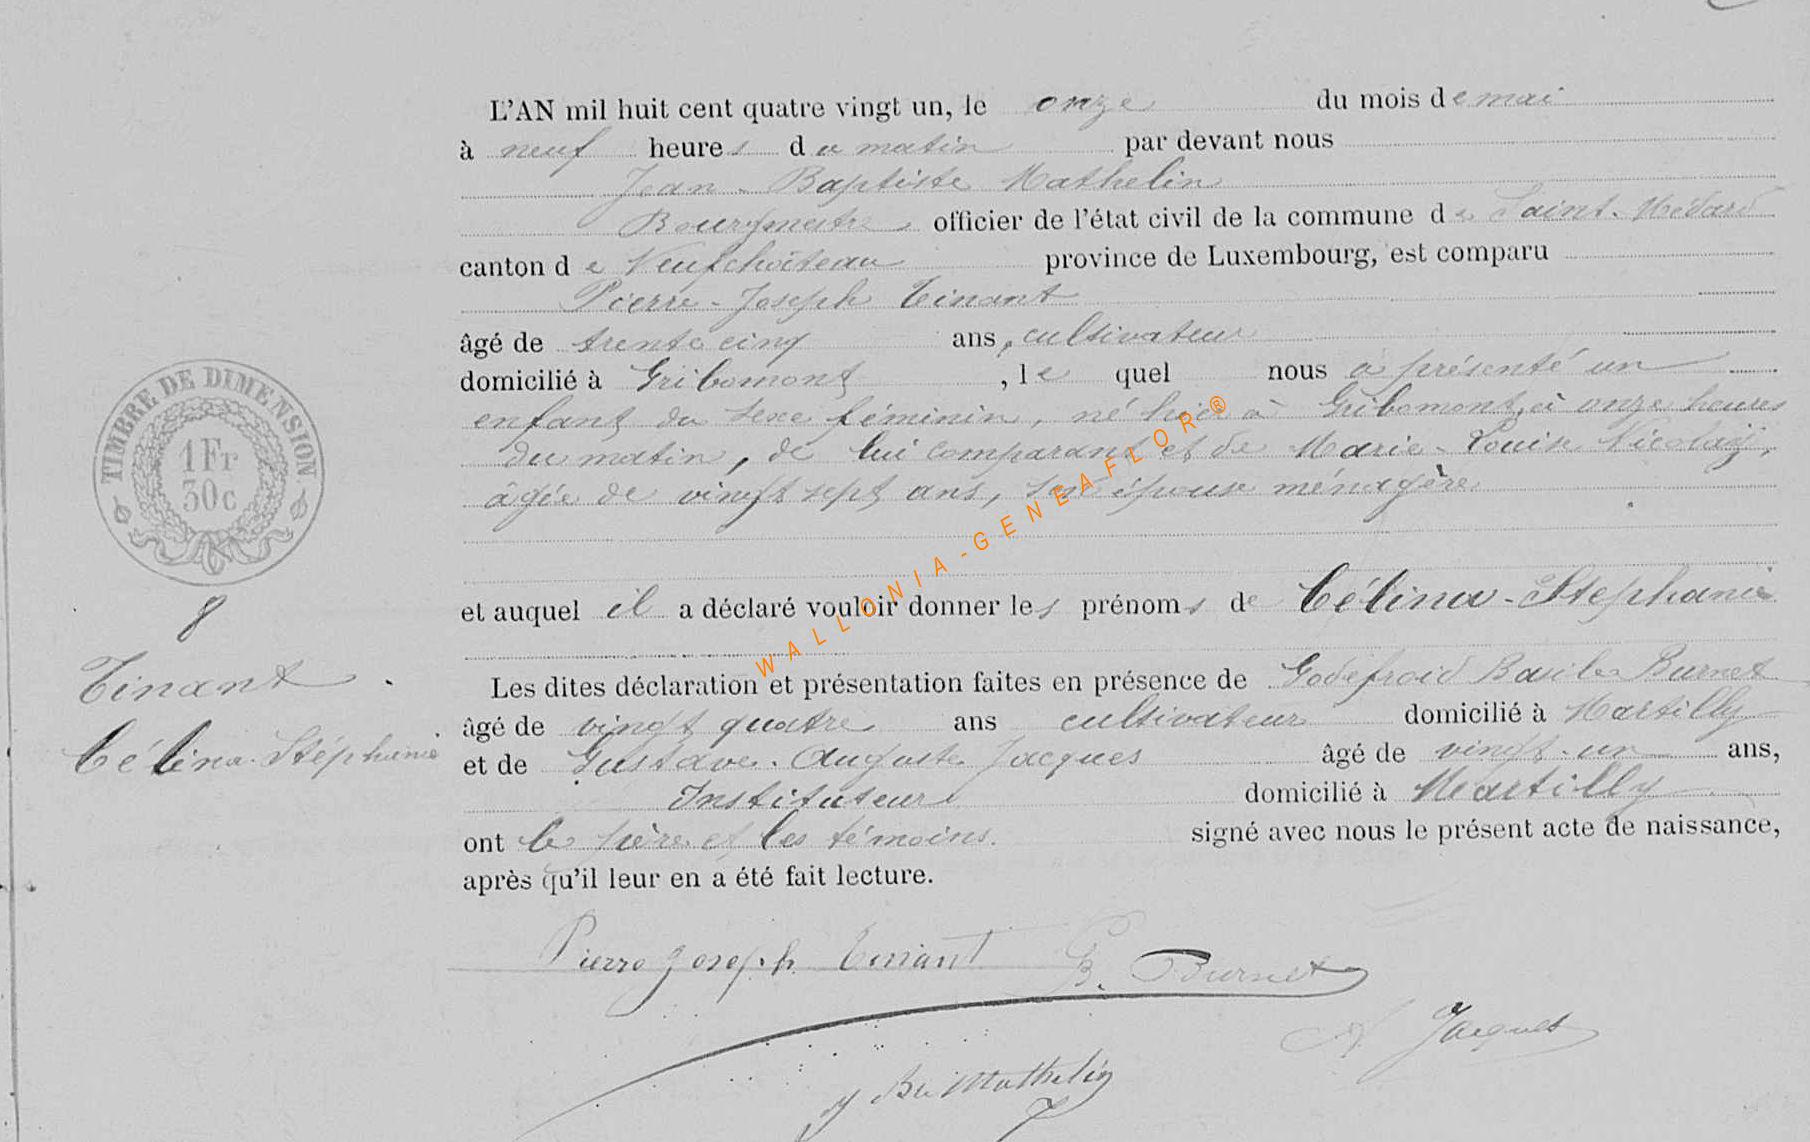 L'AN mil huit cent quatre vingt un, le onze du mois de mai
à neuf heures du matin par devant nous
Jean-Baptiste Mathelin
Bourgmestre officier de l'état civil de la commune de Saint-Médard
canton de Neufchâteau province de Luxembourg, est comparu
Pierre-Joseph Tinant
âgé de trente cinq ans, cultivateur
domicilié à Gribomont, lequel nous a présenté un
enfant du sexe féminin, né hier à Gribomont, à onze heures
du matin, de lui comparant et de Marie-Louise Nicolay,
âgée de vingt sept ans, son épouse ménagère
TIMBRE DE DIMENSION
1 Fr
50 c
et auquel il a déclaré vouloir donner les prénoms de Célina-Stéphanie
8
Tinant
Célina-Stéphanie
Les dites déclaration et présentation faites en présence de Godefroid Basile Burnet
âgé de vingt quatre ans cultivateur domicilié à Martilly
et de Gustave-Auguste Jacques âgé de vingt-un ans,
Instituteur domicilié à Martilly
ont le père et les témoins. signé avec nous le présent acte de naissance,
après qu'il leur en a été fait lecture.
Pierre Joseph Tinant B. Burnet
A Jacques
J Bte Mathelin
WALLONIA-GENEAFLOR®